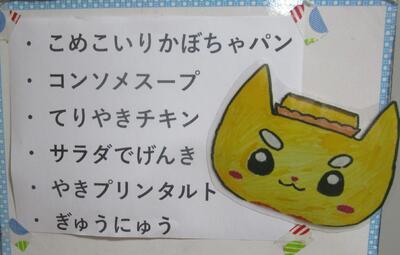 ・こめこいりかぼちゃパン
・コンソメスープ
・てりやきチキン
・サラダでげんき
・やきプリンタルト
・ぎゅうにゅう